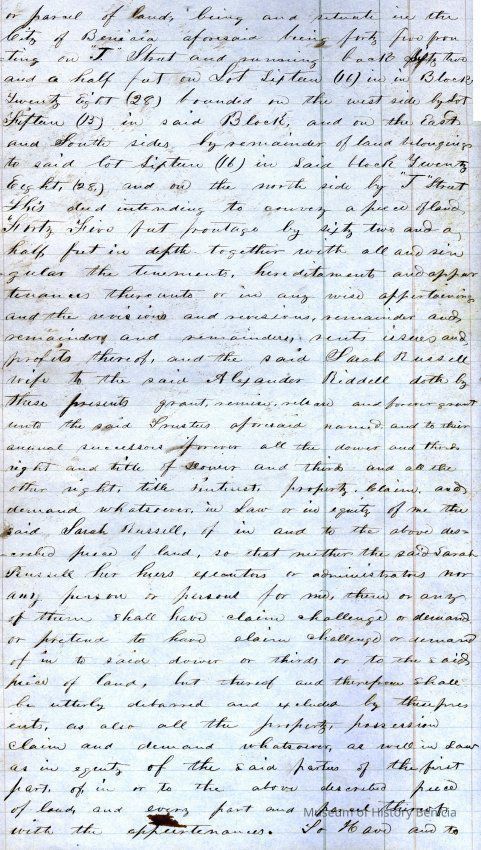 or parcel of land, being and situate in the
City of Benicia aforesaid being forty five fron
ting on "I" Street and running back sixty two
and a half feet on Lot Sixteen (16) in in Block
Twenty Eight (28) bounded on the west side by Lot
Fifteen (15) in said Block, and on the East
and South sides by remainder of land belonging
to said lot Sixteen (16) in said block Twenty
Eight (28,) and on the north side by "I" Street
This deed intending to convey a piece of land
Forty Five feet frontage by sixty two and a
half feet in depth together with all and sin
gular the tenements, hereditament and appur
tenances thereunto or in any wise appertaining
and the revisions and revisions, remainder and
remainders and remainders, rents issues and
profits thereof, and the said Sarah Russell
wife to the said Alexander Riddell doth by
these presents grant, remise, release and forever grant
unto the said Trustees aforesaid named and to their
annual successors forever all the dower and thirds
right and title of dower and thirds and all the
other right, title interest, property, Claim, and
demand whatsoever, in Law or in equity of me the
said Sarah Russell, of in and to the above des=
cribed piece of land, so that neither the said Sarah
Russell her heirs executors or administrators nor
any person or persons for me, them or any
of them shall have claim challenge or demand
or pretend to have claim challenge or demand
of in to said dower or thirds or to the said
piece of land, but thereof and therefrom shall
be utterly debarred and excluded by these pres
ents, as also all the property, possession
Claim and demand whatsoever, as well in Law
as in equity of the said parties of the first
part, of in or to the above described piece
of land, and every part and parcel thereof
with the appurtenances. To Have and to
Museum of History Benicia